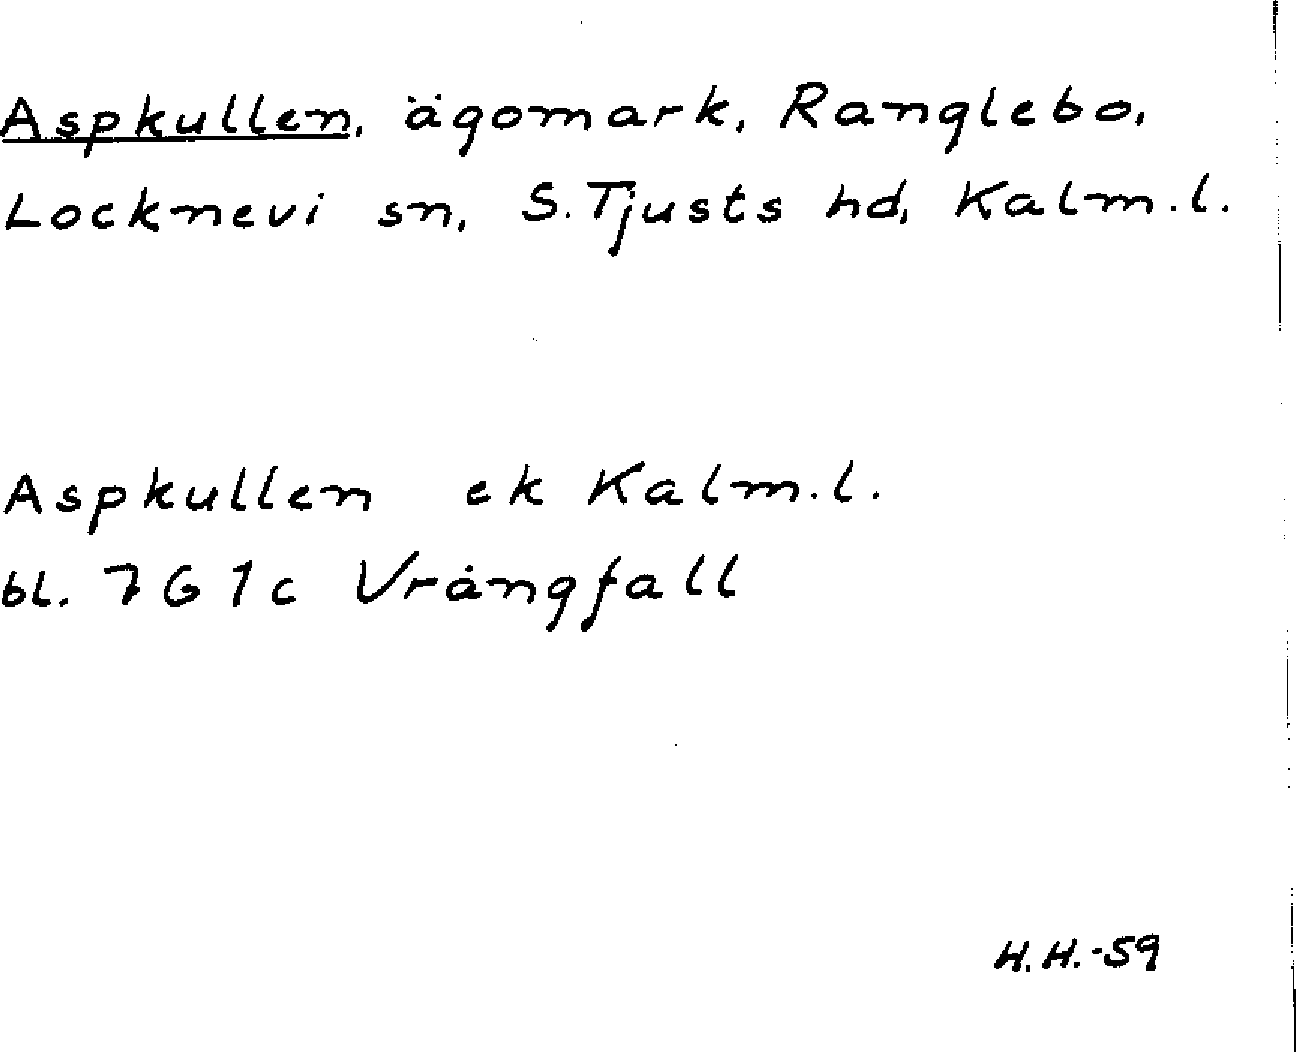 Aspkullen, ägomark, Ranglebo,
Locknevi sn, S. Tjusts hd, Kalm. l.
Aspkullen ek Kalm. l.
bl. 7 G 1c Vrångfall
H. H. -59